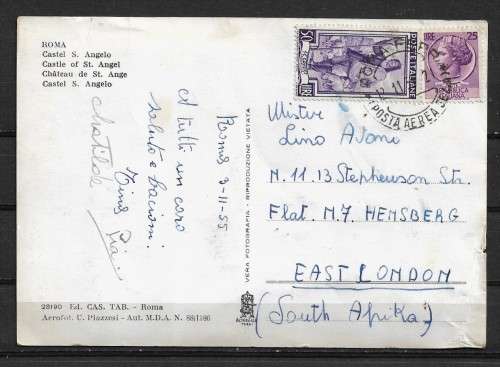 ROMA
Castel S. Angelo
Castle of St. Angel
Château de St. Ange
Castel S. Angelo
Roma 3-11-55
A tutti un caro
saluto e bacioni.
Matilde
28190 Ed. CAS. TAB. - Roma
Aerofot. U. Piazzesi - Aut. M.D.A. N. 88/1186
VERA FOTOGRAFIA - RIPRODUZIONE VIETATA
50
LIRE
POSTE ITALIANE
LIRE 25
ITALIANA
POSTA AEREA
Mister
Lino
N. 11.13 Stephenson Str.
Flat. N.7 HENSBERG
EAST LONDON
(South Afrika)